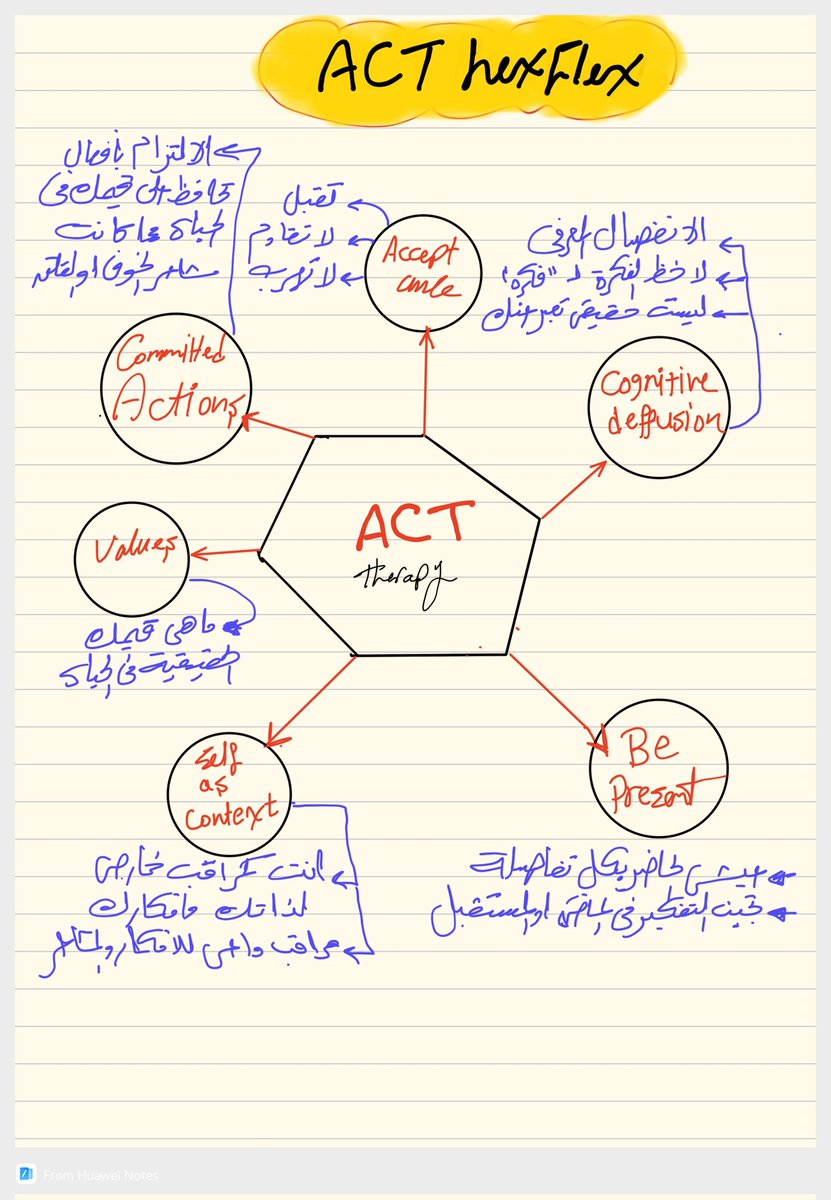 ACT hexFlex
الالتزام بأفعال
تحافظ على قيمك في
الحياة مهما كانت
مشاعر الخوف او القلق
تقبل
لا تقاوم
لا تهرب
Accept
ance
الانفصال المعرفي
لاحظ الفكرة كـ "فكرة"
ليست حقيقة تعبر عنك
Committed
Actions
Cognitive
deffusion
ACT
therapy
Values
ما هي قيمك
الحقيقية في الحياة
Self
as
Context
Be
Present
انت كمراقب خارجي
لذاتك وأفكارك
مراقب واعي للافكار والمشاعر
عيش الحاضر بكل تفاصيله
تجنب التفكير في الماضي او المستقبل
From Huawei Notes